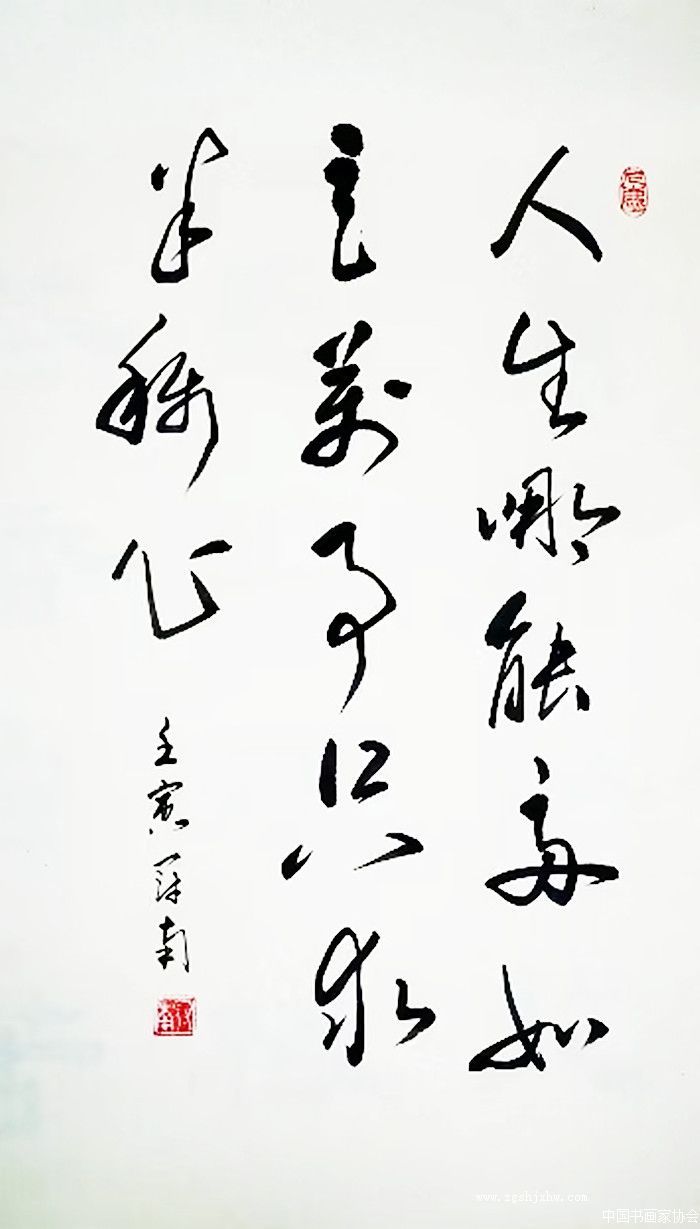 人生哪能多如
意萬事只求
半稱心
壬寅 南
www.zgshjxhw.com
中国书画家协会